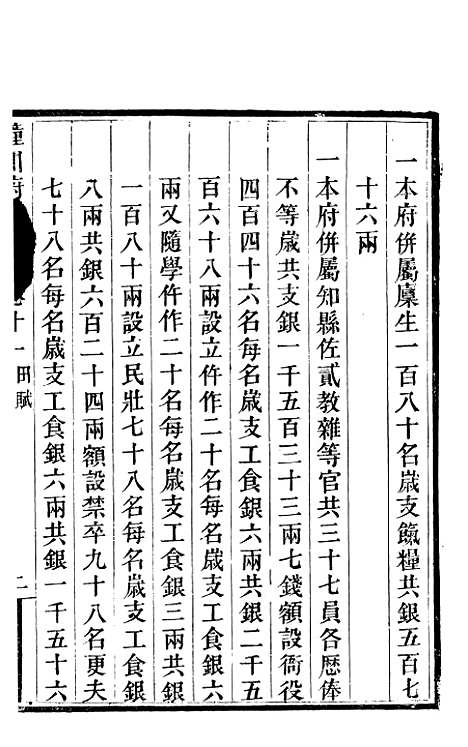 一本府併屬廩生一百八十名歲支餼糧共銀五百七
十六兩
一本府併屬知縣佐貳教雜等官共三十七員各歷俸
不等歲共支銀一千五百三十三兩七錢額設衙役
四百四十六名每名歲支工食銀六兩共銀二千五
百六十八兩設立仵作二十名每名歲支工食銀六
兩又隨學仵作二十名每名歲支工食銀三兩共銀
一百八十兩設立民壯七十八名每名歲支工食銀
八兩共銀六百二十四兩額設禁卒九十八名更夫
七十八名每名歲支工食銀六兩共銀一千五十六
潼川府
十一田賦
二